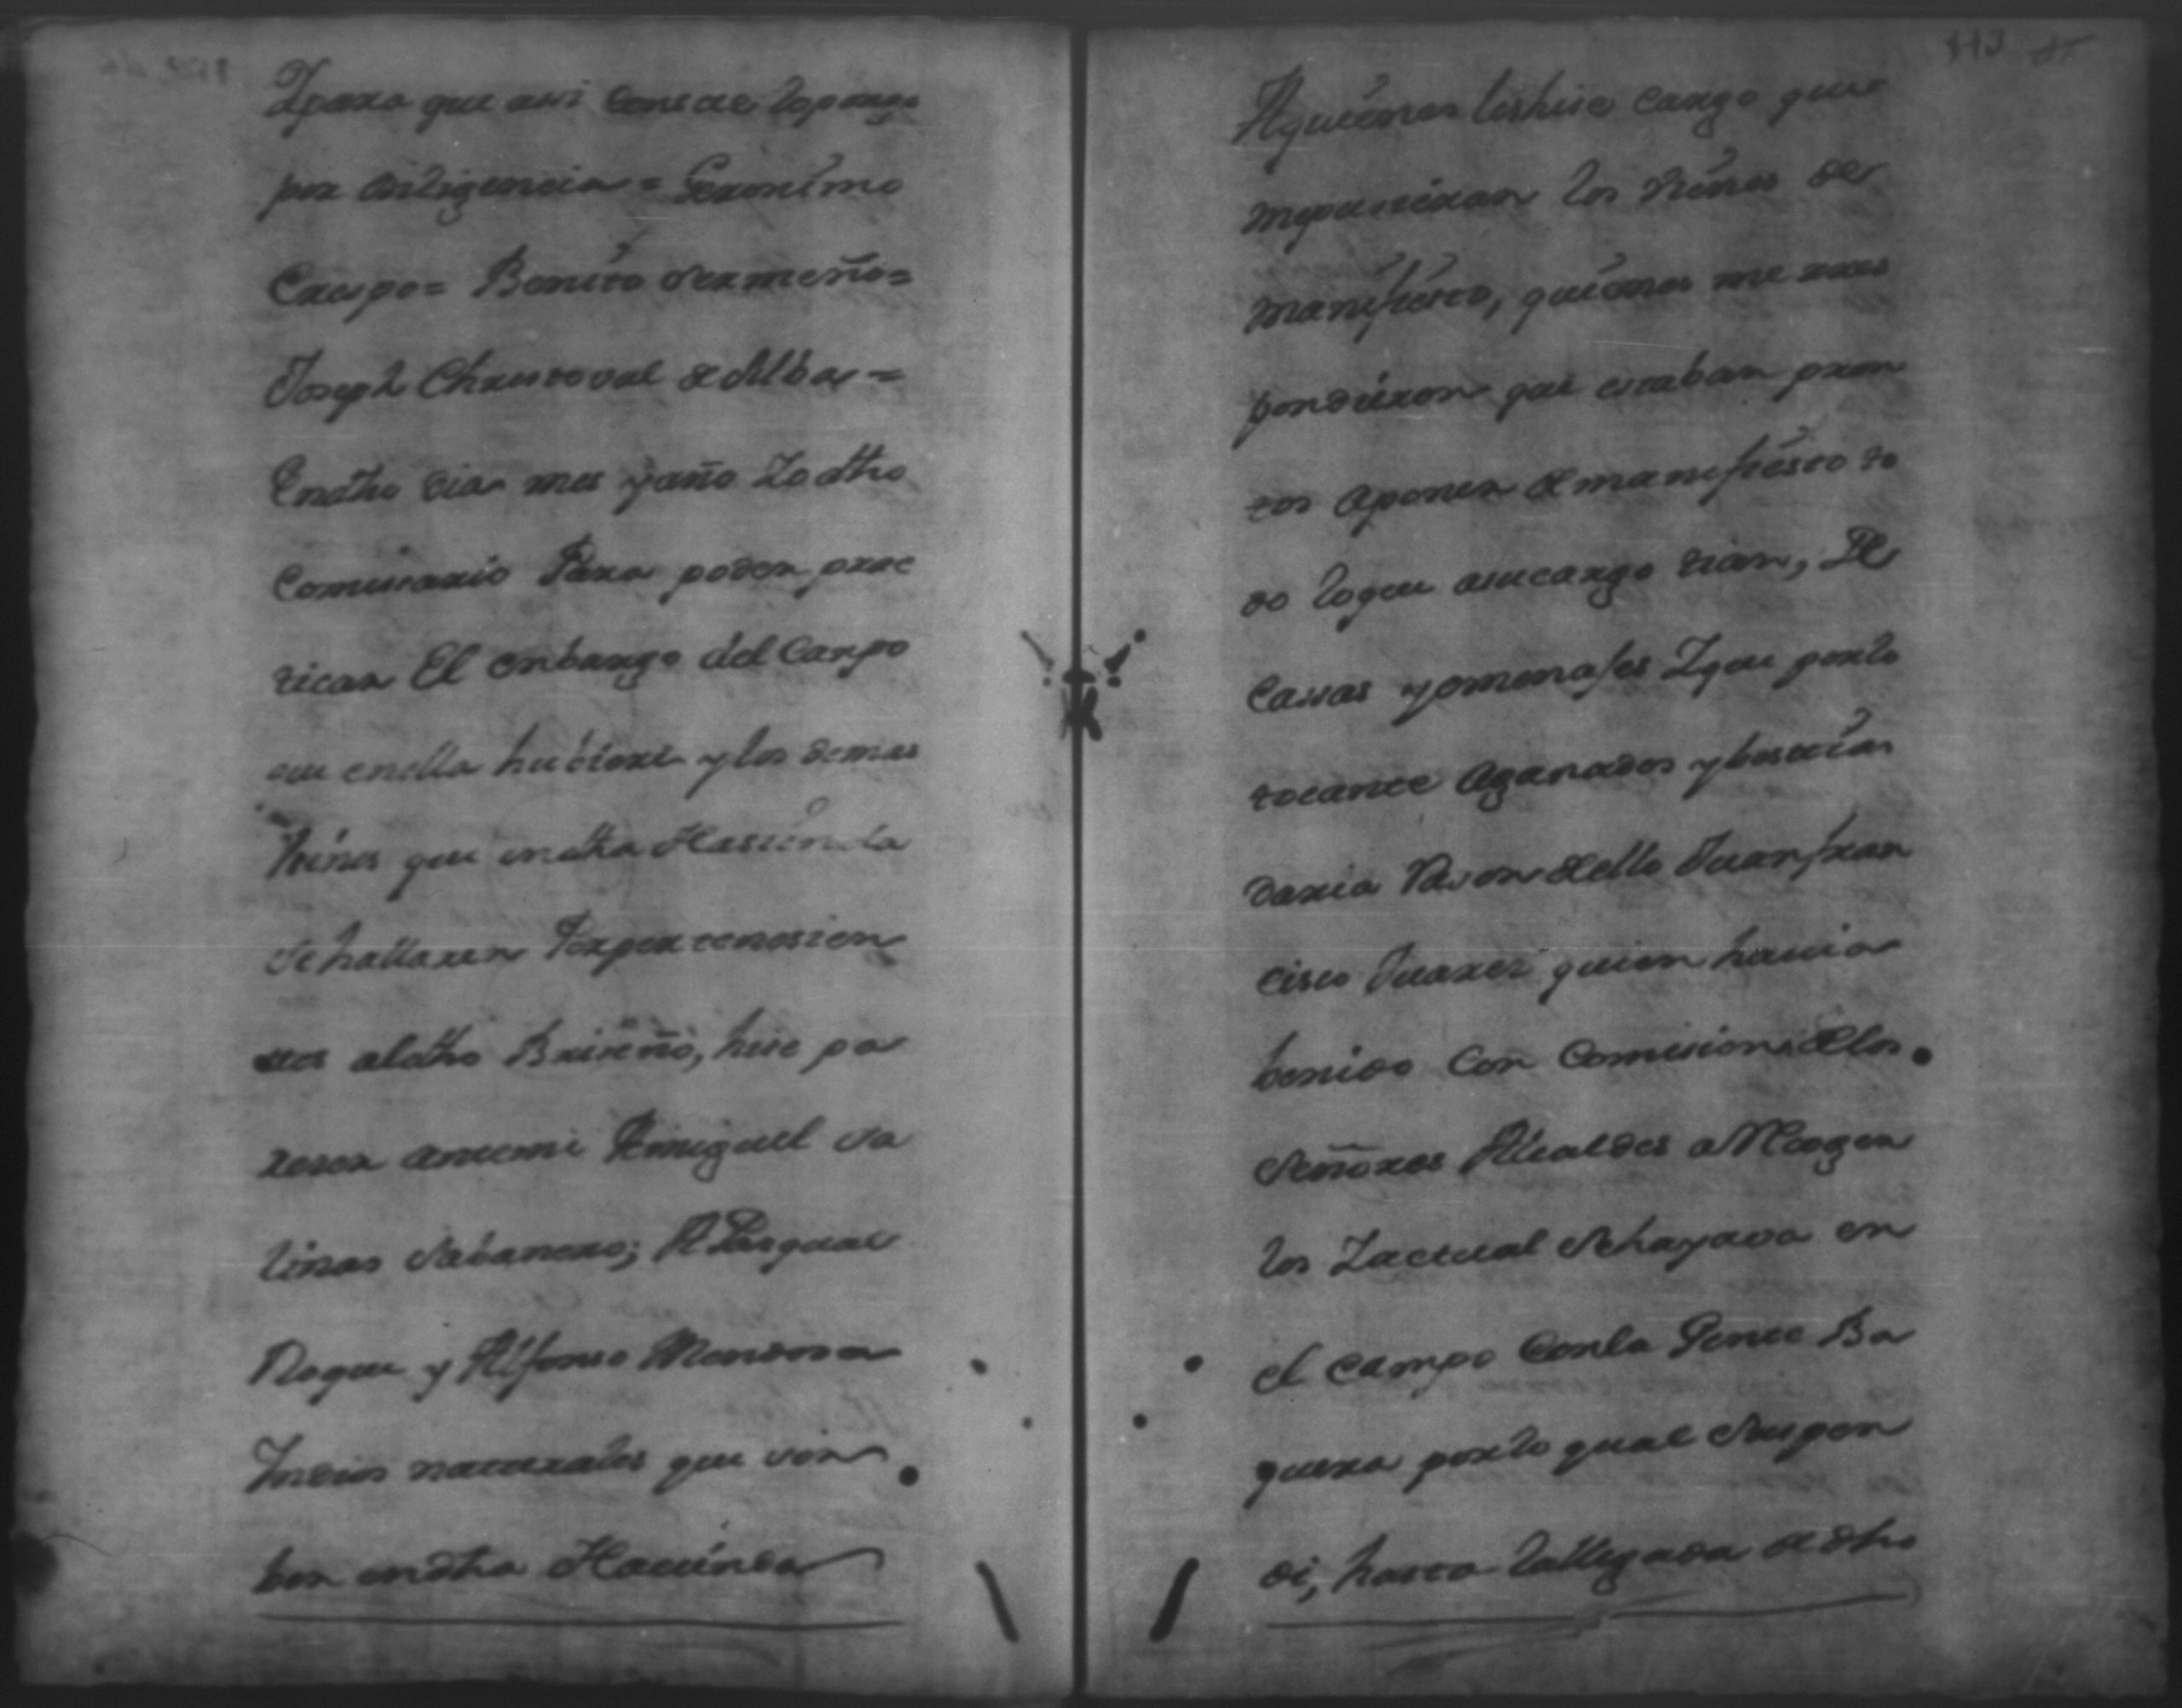 Ypara que asi conste lo pongo
por diligencia = Geronimo
Crespo = Benito Sermeño =
Joseph Christoval de Alba =
En dho dia mes y año Yo dho
Comisario Para poder prac
ticar El enbargo del Campo
que en ella hubiere y los demas
vienes que en dha Hasienda
se hallaren Perpertenesien
tes al dho Briseño, hise pa
reser ante mi Miguel Sa
linas Sabanero; A Pasqual
Roque y Alfonso Mendosa
Indios naturales que vin
ben en dha Hacienda
113
A quienes les hise cargo que
mepucieran los vienes de
manifiesto, quienes me rres
pondieron que estaban pron
tos aponer de manifiesto to
do loque asucargo tian, De
Cassas y omenajes Yque porlo
tocante aganados y bestias
daria Rason dello Juan fran
cisco Suares quien havia
benido Con Comision delos
Señores Alcaldes a Recoger
los Yactual se hayava en
el Campo Conla Gente Ba
quera porlo qual suspen
di, hasta la llegada de dho